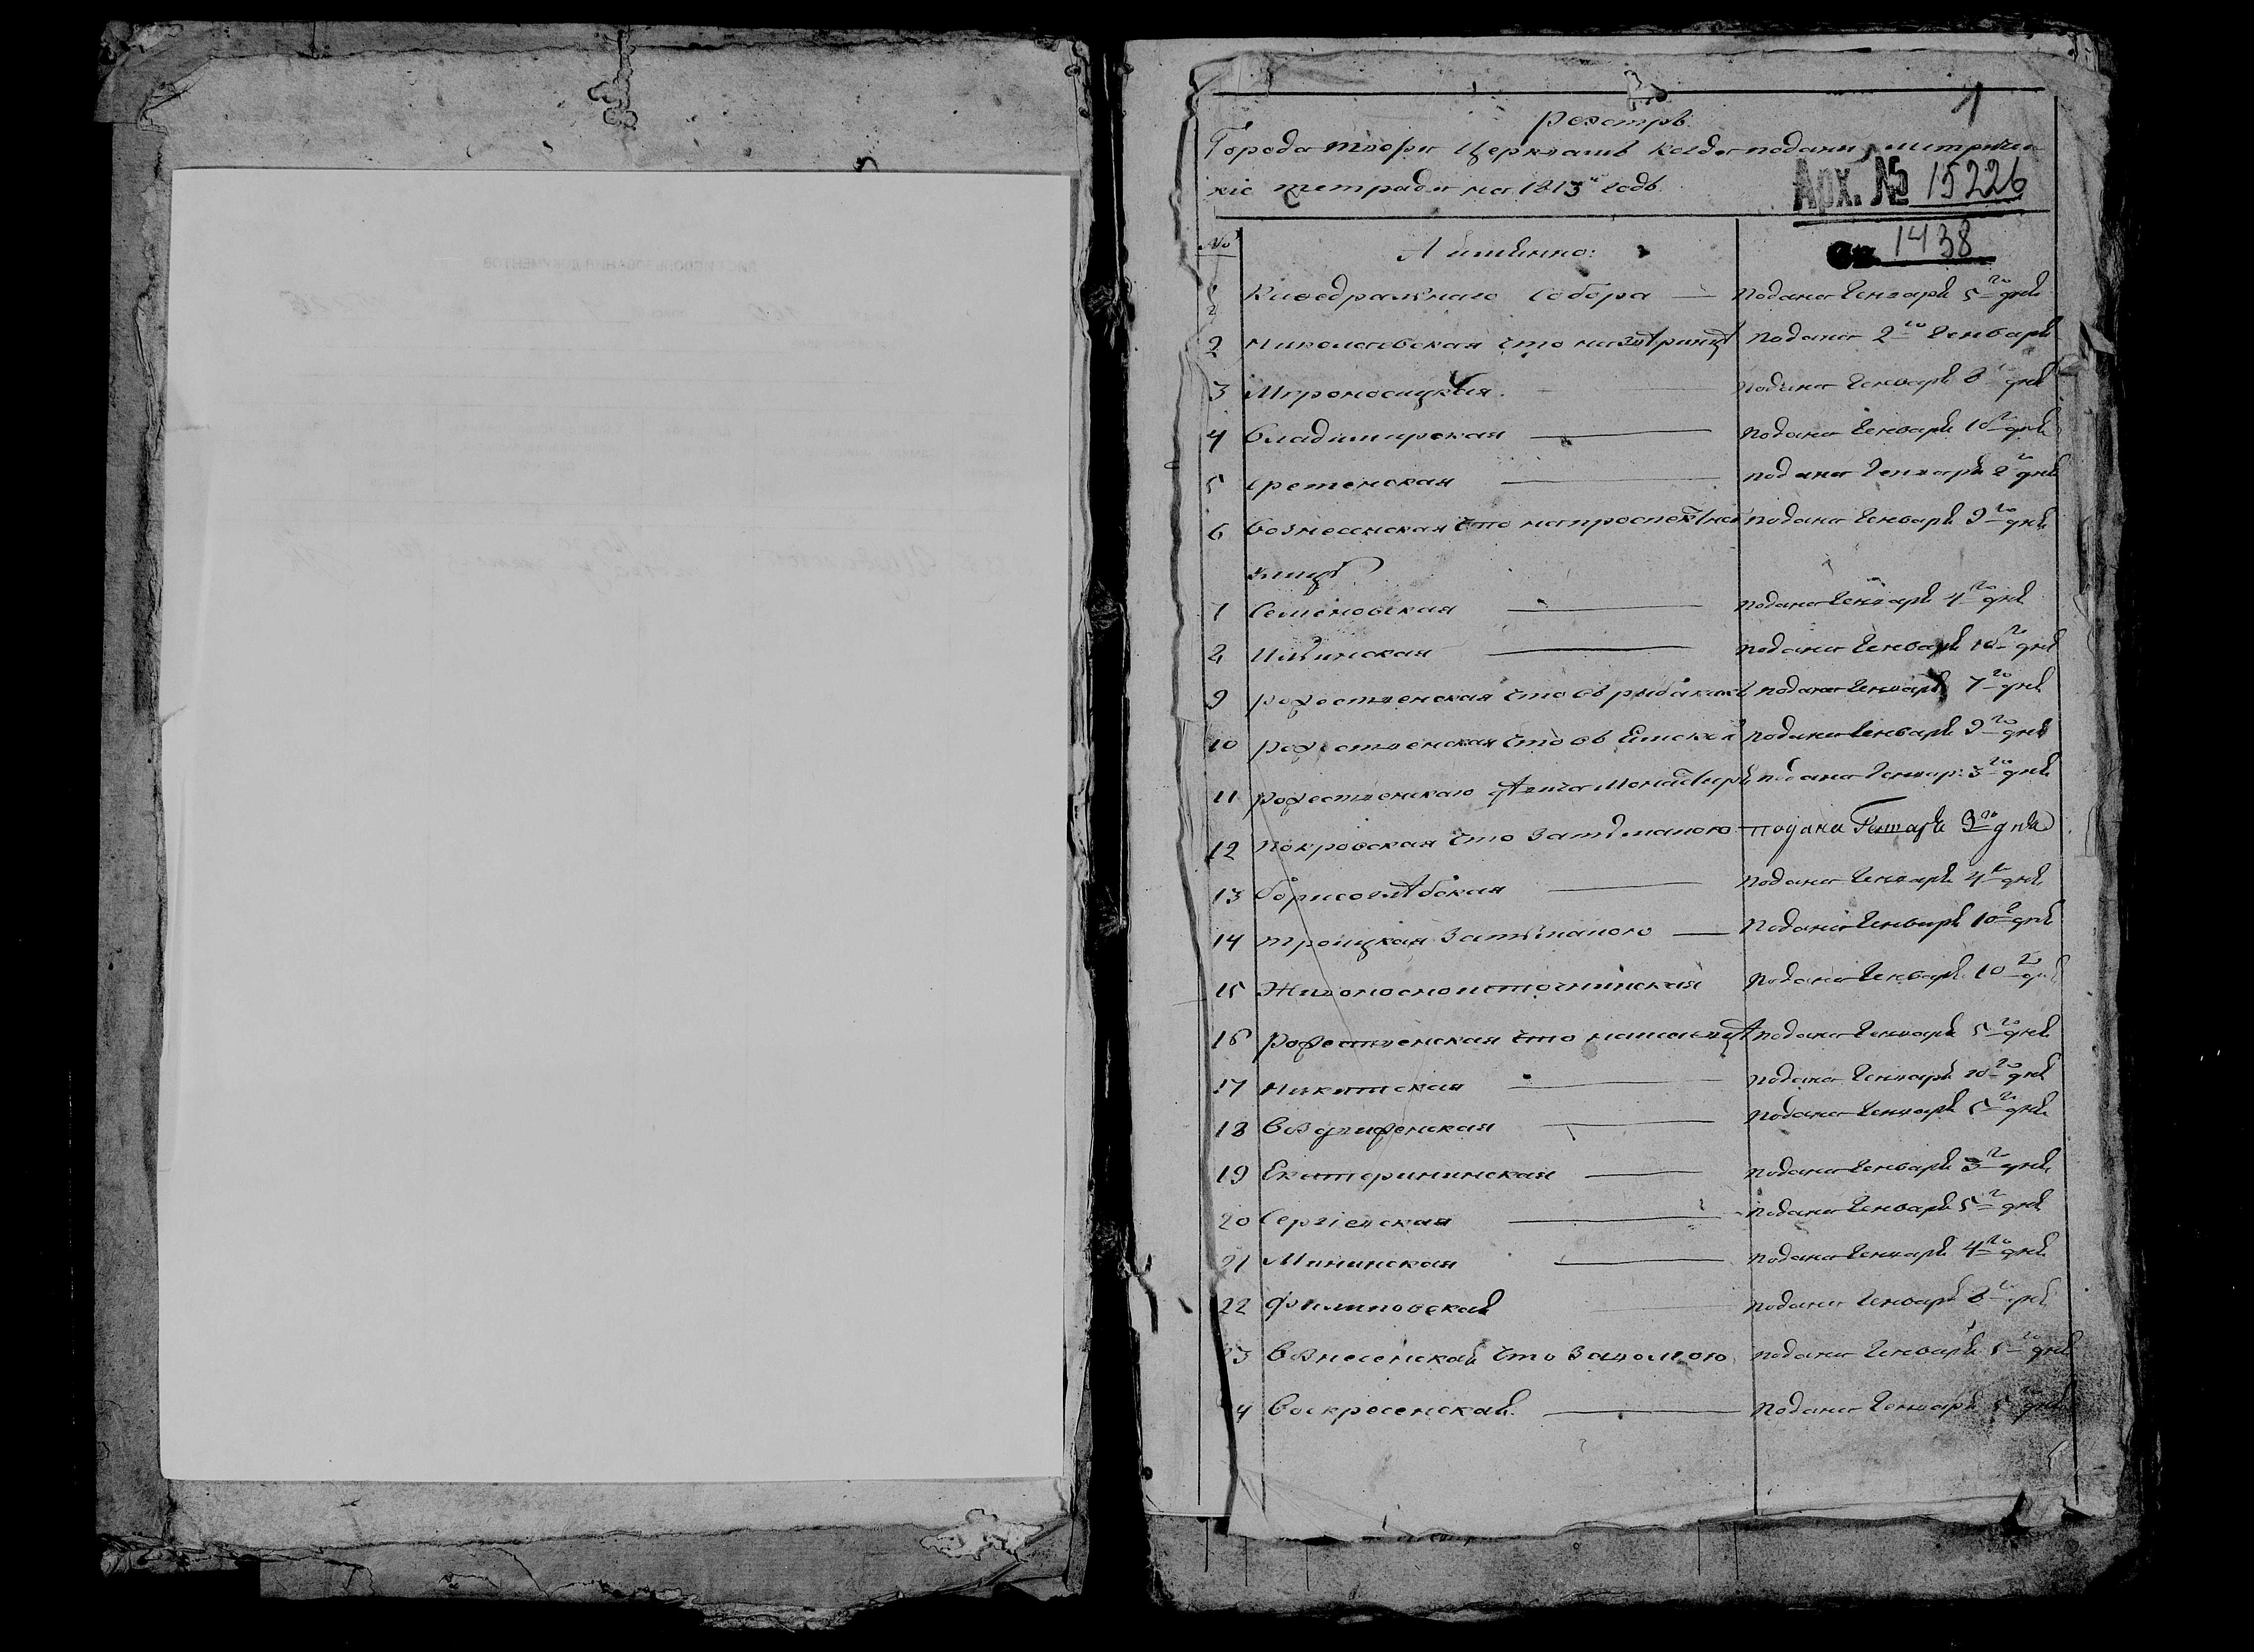 1
Реэстръ
Города твери Церквамъ когда поданы метричес
кіе тетради на 1813й годъ.
Арх. № 15226
Св. 1438
№ А имянно:
1 Кафедральнаго Собора — Подана Генваря 5го дня
2 Николаевская что на звѣринцѣ Подана 2го Генваря
3 Мѵроносицкая. Подана Генваря 8 дня
4 Владимирская — подана Генваря 10го дня
5 Сретенская — подана Генваря 2го дня
6 Вознесенская что на проспектной подана Генваря 9го дня
улицѣ
7 Семеновская — подана Генваря 4го дня
8 Ильинская — подана Генваря 10го дня
9 рожественская что въ рыбакахъ подана Генваря 7го дня
10 рожественская что въ Ямской подана Генваря 9го дня
11 рожественскаго дѣвича Монастыря подана Генвар: 3го дня
12 Покровская что за тмакою подана Генваря 9го дня
13 Борисоглѣбская — подана Генваря 4го дня
14 троицкая за тмакою — Подана Генваря 10го дня
15 Живоносноисточнинская подана Генваря 10го дня
16 рожественская что на подана Генваря 5го дня
17 Никитская — подана Генваря 10го дня
18 Воздвиженская — подана Генваря 5го дня
19 Екатерининская — подана Генваря 3го дня
20 Сергіевская — подана Генваря 5го дня
21 Мининская — подана Генваря 4го дня
22 Филиповская подана Генваря 8го дня
23 Вознесенская что за волгою подана Генваря 5го дня
24 Воскресенская. — подана Генваря 5го дня